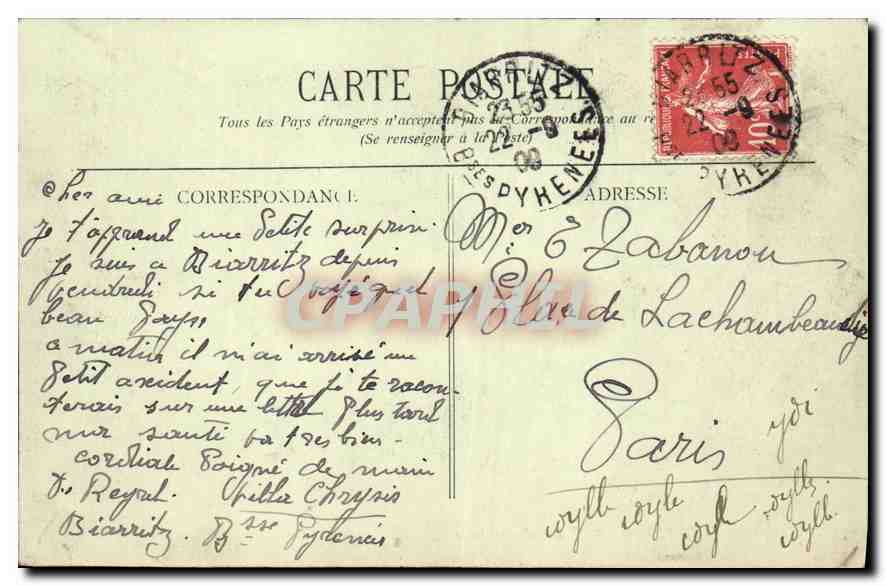 CARTE POSTALE
Tous les Pays étrangers n'acceptent pas la Correspondance au
(Se renseigner à la Poste)
BIARRITZ
23 55
22 -9
09
Bses PYRENEES
BIARRITZ
55
22 -9
09
PYRENEES
10c
CORRESPONDANCE
ADRESSE
cher ami
je t'apprend une Petite surprise
je suis a Biarritz depuis
vendredi si tu voyé quel
beau Pays
ce matin il m'ai arrivé un
Petit axident, que je te racon-
terais sur une lettre Plus tard
mor santé va tres bien-
cordiale Poigné de main
D. Reyral. villa Chrysis
Biarritz. Bsse Pyrenées
Mer E Zabanou
1 Place de Lachambeaudie
Paris
ydi
idylle idyle idyl idylle
idylle
CPAPHIL